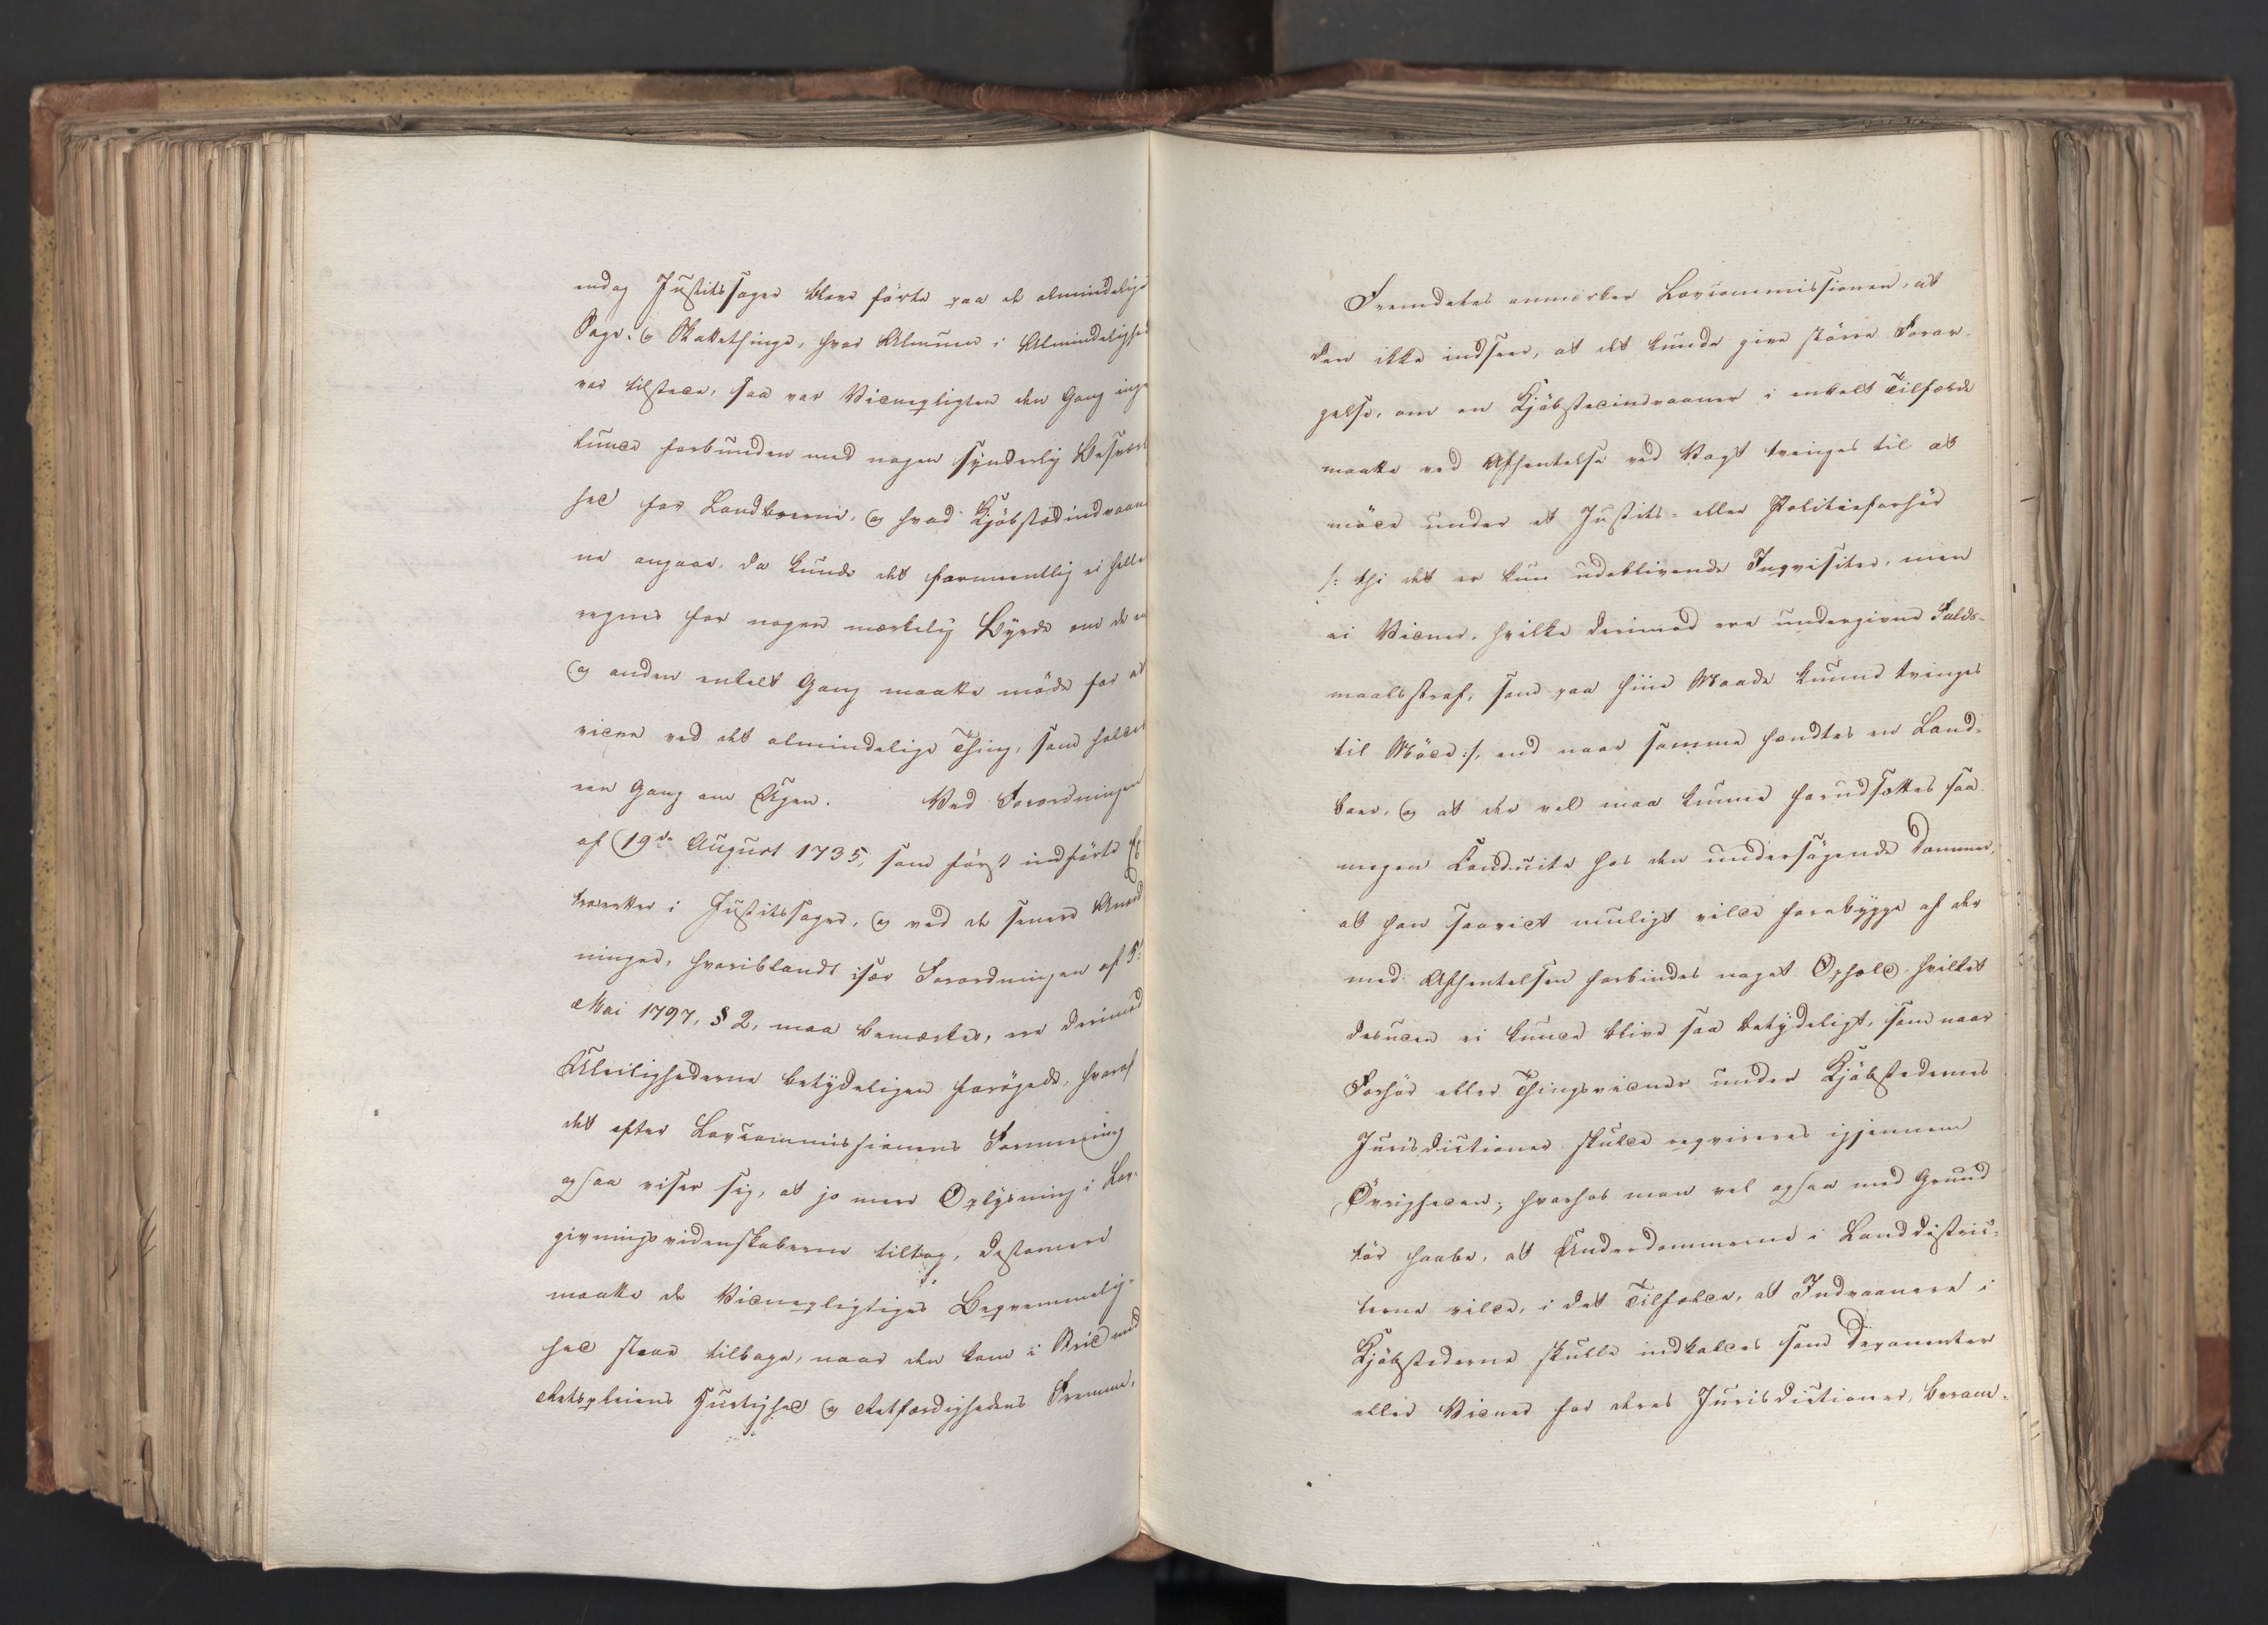 endog Justitssager bleve førte paa de almindelige
Sage- og Skattethinge, hvor Almuen i Almindelighed
var tilstæde, saa var Vidnepligten den Gang ingen-
lunde forbunden med nogen synderlig Besvær-
hed for Landboerne, og hvad Kjøbstædindvaaner-
ne angaaer, da kunde det formeentlig ei heller
regnes for nogen mærkelig Byrde om de en
og anden enkelt Gang maatte møde for at
vidne ved det almindelige Thing, som holdes
een Gang om Ugen. Ved Forordningen
af 19de August 1735, som først indførte Ex-
traretter i Justitssager, og ved de senere Anord-
ninger, hvoriblandt især Forordningen af 5:
Mai 1797, § 2, maa bemærkes, ere derimod
Uleilighederne betydeligen forøgede, hvoraf
det efter Lovcommissionens Formening
ogsaa viser sig, at jo meer Oplysning i Lov-
givningsvidenskaberne tiltog, destomere
maatte de Vidnepligtiges Beqvemmelig-
hed staae tilbage, naar den kom i Strid med
Retspleiens Hurtighed og Retfærdighedens Fremme.
Fremdeles anmærker Lovcommissionen, at
den ikke indseer, at det kunde give større Forar-
gelse, om en Kjøbstedindvaaner i enkelt Tilfælde
maatte ved Afhentelse ved Vagt tvinges til at
møde under et Justits- eller Politieforhør
/: thi det er kun udeblivende Inqvisiter, men
ei Vidner, hvilke derimod ere undergivne Falds-
maalsstraf, som paa hiin Maade kunne tvinges
til Møde :/, end naar samme hændtes en Land-
boer, og at der vel maa kunne forudsættes saa
megen Conduite hos den undersøgende Dommer,
at han saavidt muligt vilde forebygge at der
med Afhentelsen forbindes noget Ophold, hvilket
desuden ei kunde blive saa betydeligt, som naar
Forhør eller Thingsvidner under Kjøbstedernes
Jurisdictioner skulde reqvireres igjennem
Øvrigheden; hvorhos man vel ogsaa med Grund
tør haabe, at Underdommerne i Landdistric-
terne vilde, i det Tilfælde, at Indvaanere i
Kjøbstederne skulle indkaldes som Deponenter
eller Vidner for deres Jurisdictioner, beram-